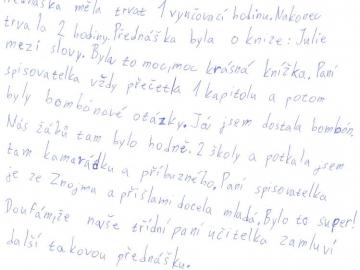 měla trvat 1 vyučovací hodinu. Nakonec
trvala 2 hodiny. Přednáška byla o knize: Julie
mezi slovy. Byla to moc, moc krásná knížka. Paní
spisovatelka vždy přečetla 1 kapitolu a potom
byly bombónové otázky. Já jsem dostala bombón.
Nás žáků tam bylo hodně. 2 školy a potkala jsem
tam kamarádku a příbuzného. Paní spisovatelka
je ze Znojma a přišla mi docela mladá. Bylo to super!
Doufám, že naše třídní paní učitelka zamluví
další takovou přednášku.